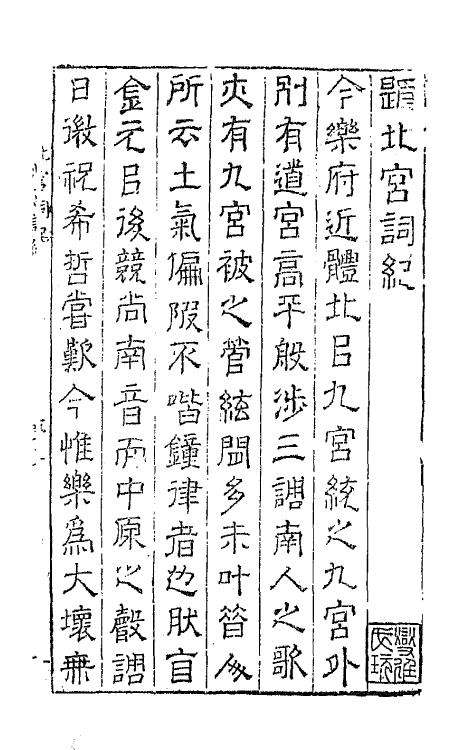 題北宮詞紀
今樂府近體北㠯九宮統之九宮外
別有道宮高平般涉三調南人之歌
亦有九宮被之管絃閒多未叶昔人
所云土氣偏陂不諧鐘律者也肰盲
金元㠯後競尚南音而中原之聲調
日𢾭祝希哲嘗歎今惟樂爲大壞無